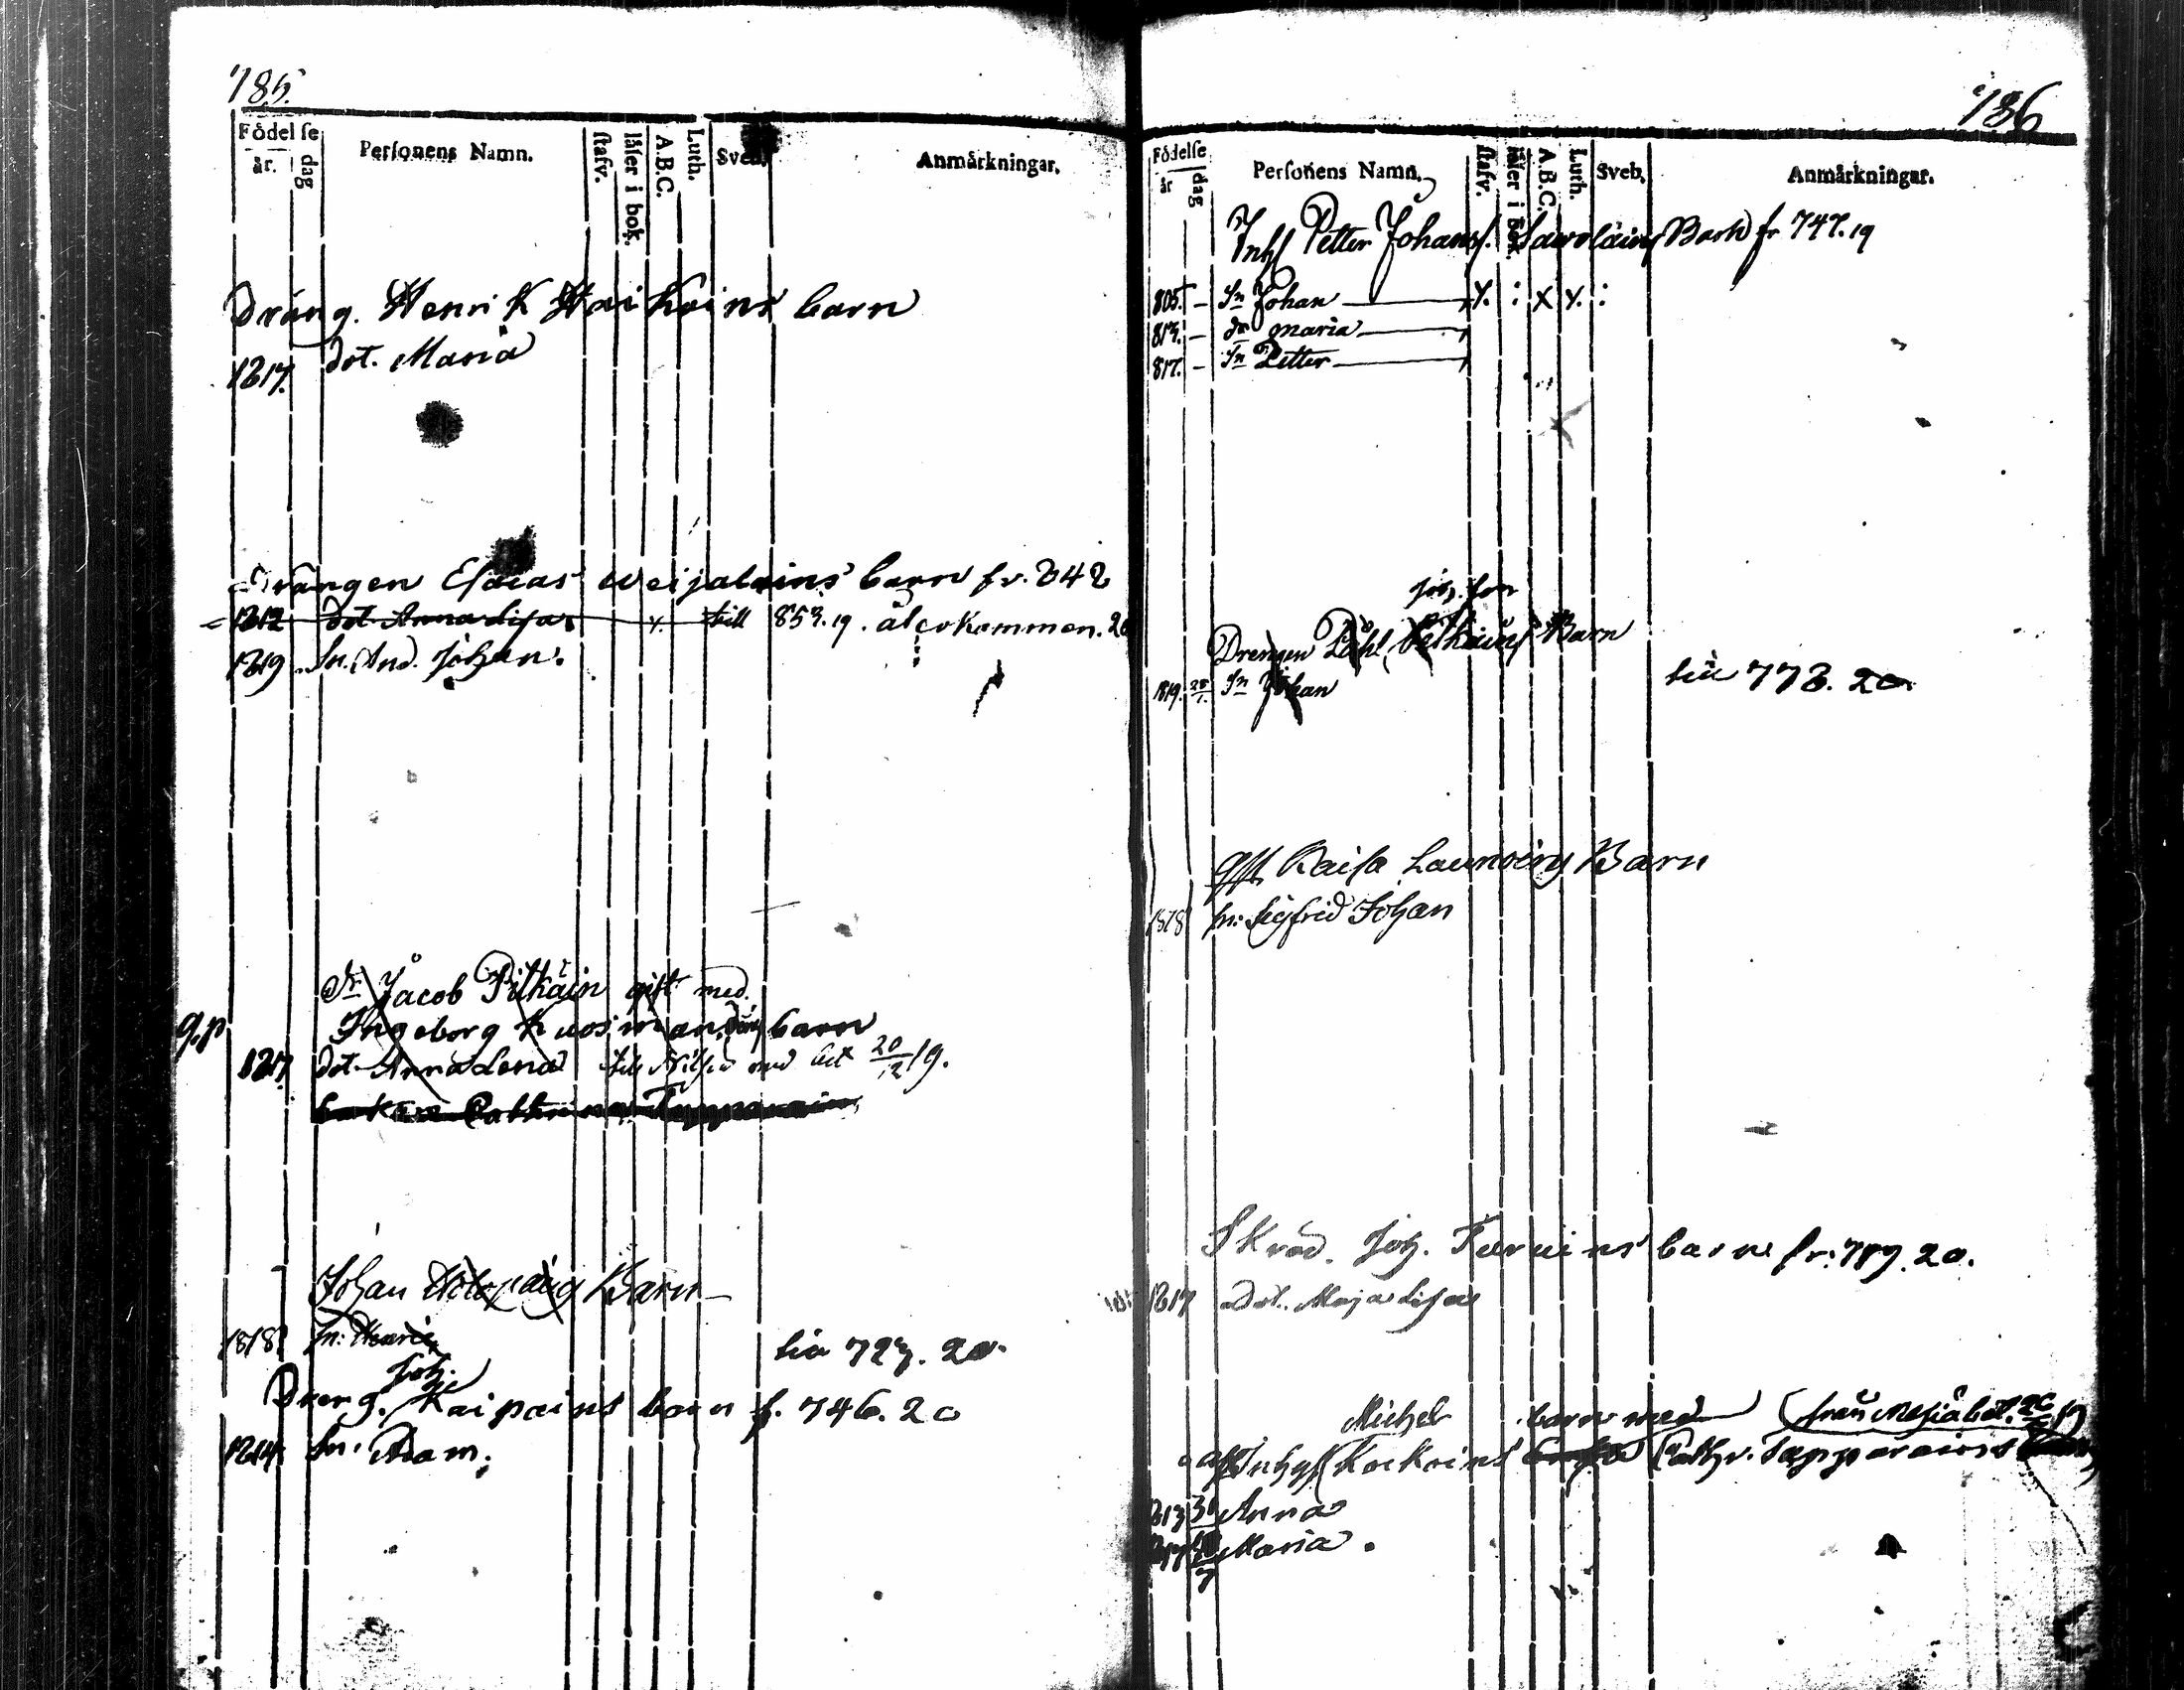 785.
Födelse
år. dag Personens Namn. stafv. läser i bok. A.B.C. Luth. Sveb. Anmärkningar.
Dräng. Henrik Haikoins barn
1817. dot. Maria
Drängen Esaias Weijalains barn fr. 842
1812 dot. Anna Lisa x. till 853. 19. återkommen. 20
1819 Sn. And. Johan.
Dr. Jacob Pitkäin gift med
Ingeborg Kuosman barn
g.p. 1817 dot. Anna Lena med bet 20/12 19.
Johan Barn
1818 sn:
till 727. 20.
Joh.
Dreng. Kaipains barn f. 746. 20
1814. Sn. Adam.
786
Födelse
år dag Personens Namn. stafv. läser i bok. A.B.C. Luth. Sveb. Anmärkningar.
Inhs Petter Johans. Savolains Barn fr 747. 19
805. – Sn Johan x. : x x. :
813. – dr Maria
817. – Sn Petter
Joh. son
Drengen Påhl Pitkäins Barn
1819. 28/1. Sn Johan till 778. 20
Kaisa Launoins Barn
1818 sn: Sigfrid Johan
Skräd. Joh. Tervoins barn fr: 789. 20.
1817 Dot. Maja Lisa
Michel barn med
Inhys Koikoins Cathr. Tapparains
1813 31 Anna
Maria.
7